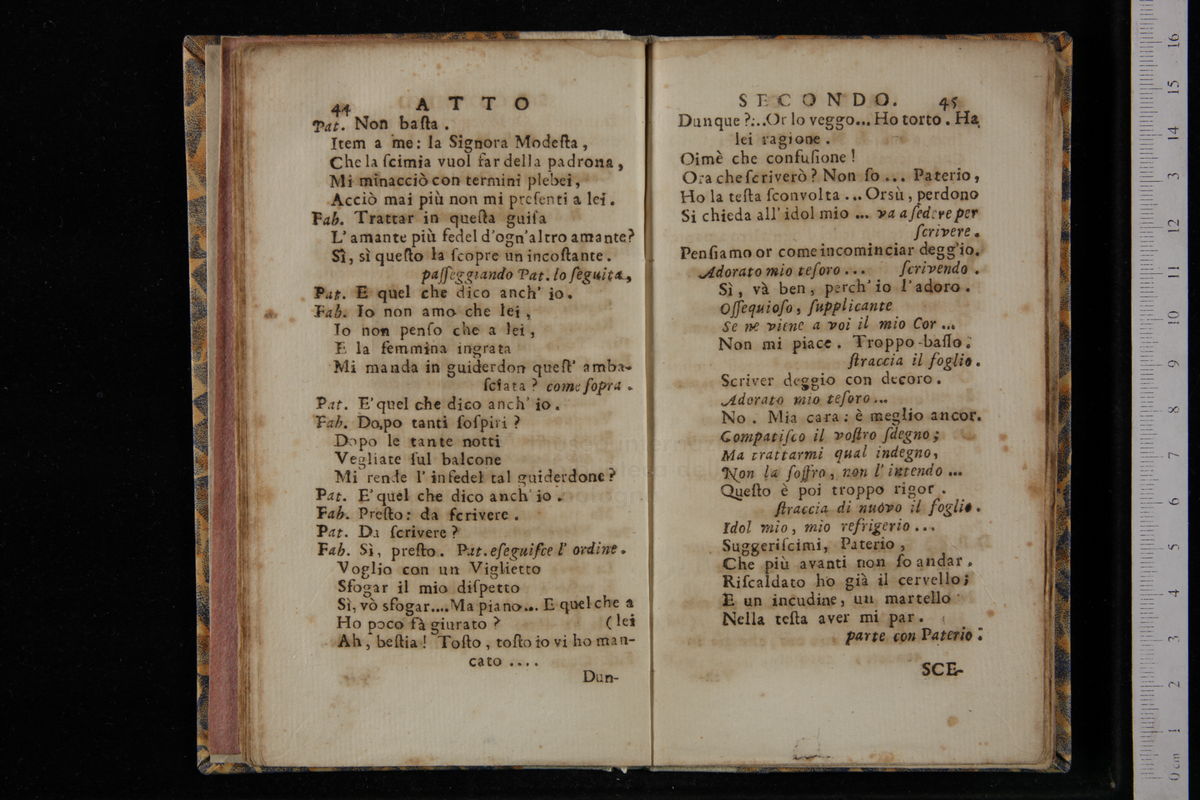 44 ATTO
Pat. Non baſta.
Item a me: la Signora Modeſta,
Che la ſcimia vuol far della padrona,
Mi minacciò con termini plebei,
Acciò mai più non mi preſenti a lei.
Fab. Trattar in queſta guiſa
L'amante più fedel d'ogn'altro amante?
Sì, sì queſto la ſcopre un incoſtante.
paſſeggiando Pat. lo ſeguita.
Pat. E quel che dico anch' io.
Fab. Io non amo che lei,
Io non penſo che a lei,
E la femmina ingrata
Mi manda in guiderdon queſt' amba-
ſciata? come ſopra.
Pat. E' quel che dico anch' io.
Fab. Dopo tanti ſoſpiri?
Dopo le tante notti
Vegliate ſul balcone
Mi rende l' infedel tal guiderdone?
Pat. E' quel che dico anch' io.
Fab. Preſto: da ſcrivere.
Pat. Da ſcrivere?
Fab. Sì, preſto. Pat. eſeguiſce l' ordine.
Voglio con un Viglietto
Sfogar il mio diſpetto
Sì, vò sfogar.... Ma piano... E quel che a
Ho poco fà giurato? (lei
Ah, beſtia! Toſto, toſto io vi ho man-
cato ....
Dun-
SECONDO. 45
Dunque?... Or lo veggo... Ho torto. Ha
lei ragione.
Oimè che confuſione!
Ora che ſcriverò? Non ſo... Paterio,
Ho la teſta ſconvolta... Orsù, perdono
Si chieda all' idol mio ... va a ſedere per
ſcrivere.
Penſiamo or come incominciar degg'io.
Adorato mio teſoro... ſcrivendo.
Sì, và ben, perch' io l'adoro.
Oſſequioſo, ſupplicante
Se ne viene a voi il mio Cor ...
Non mi piace. Troppo baſſo.
ſtraccia il foglio.
Scriver deggio con decoro.
Adorato mio teſoro...
No. Mia cara: è meglio ancor.
Compatiſco il voſtro ſdegno;
Ma trattarmi qual indegno,
Non la ſoffro, non l' intendo ...
Queſto è poi troppo rigor.
ſtraccia di nuovo il foglio.
Idol mio, mio refrigerio...
Suggeriſcimi, Paterio,
Che più avanti non ſo andar.
Riſcaldato ho già il cervello;
E un incudine, un martello
Nella teſta aver mi par.
parte con Paterio.
SCE-
0 cm 1 2 3 4 5 6 7 8 9 10 11 12 13 14 15 16